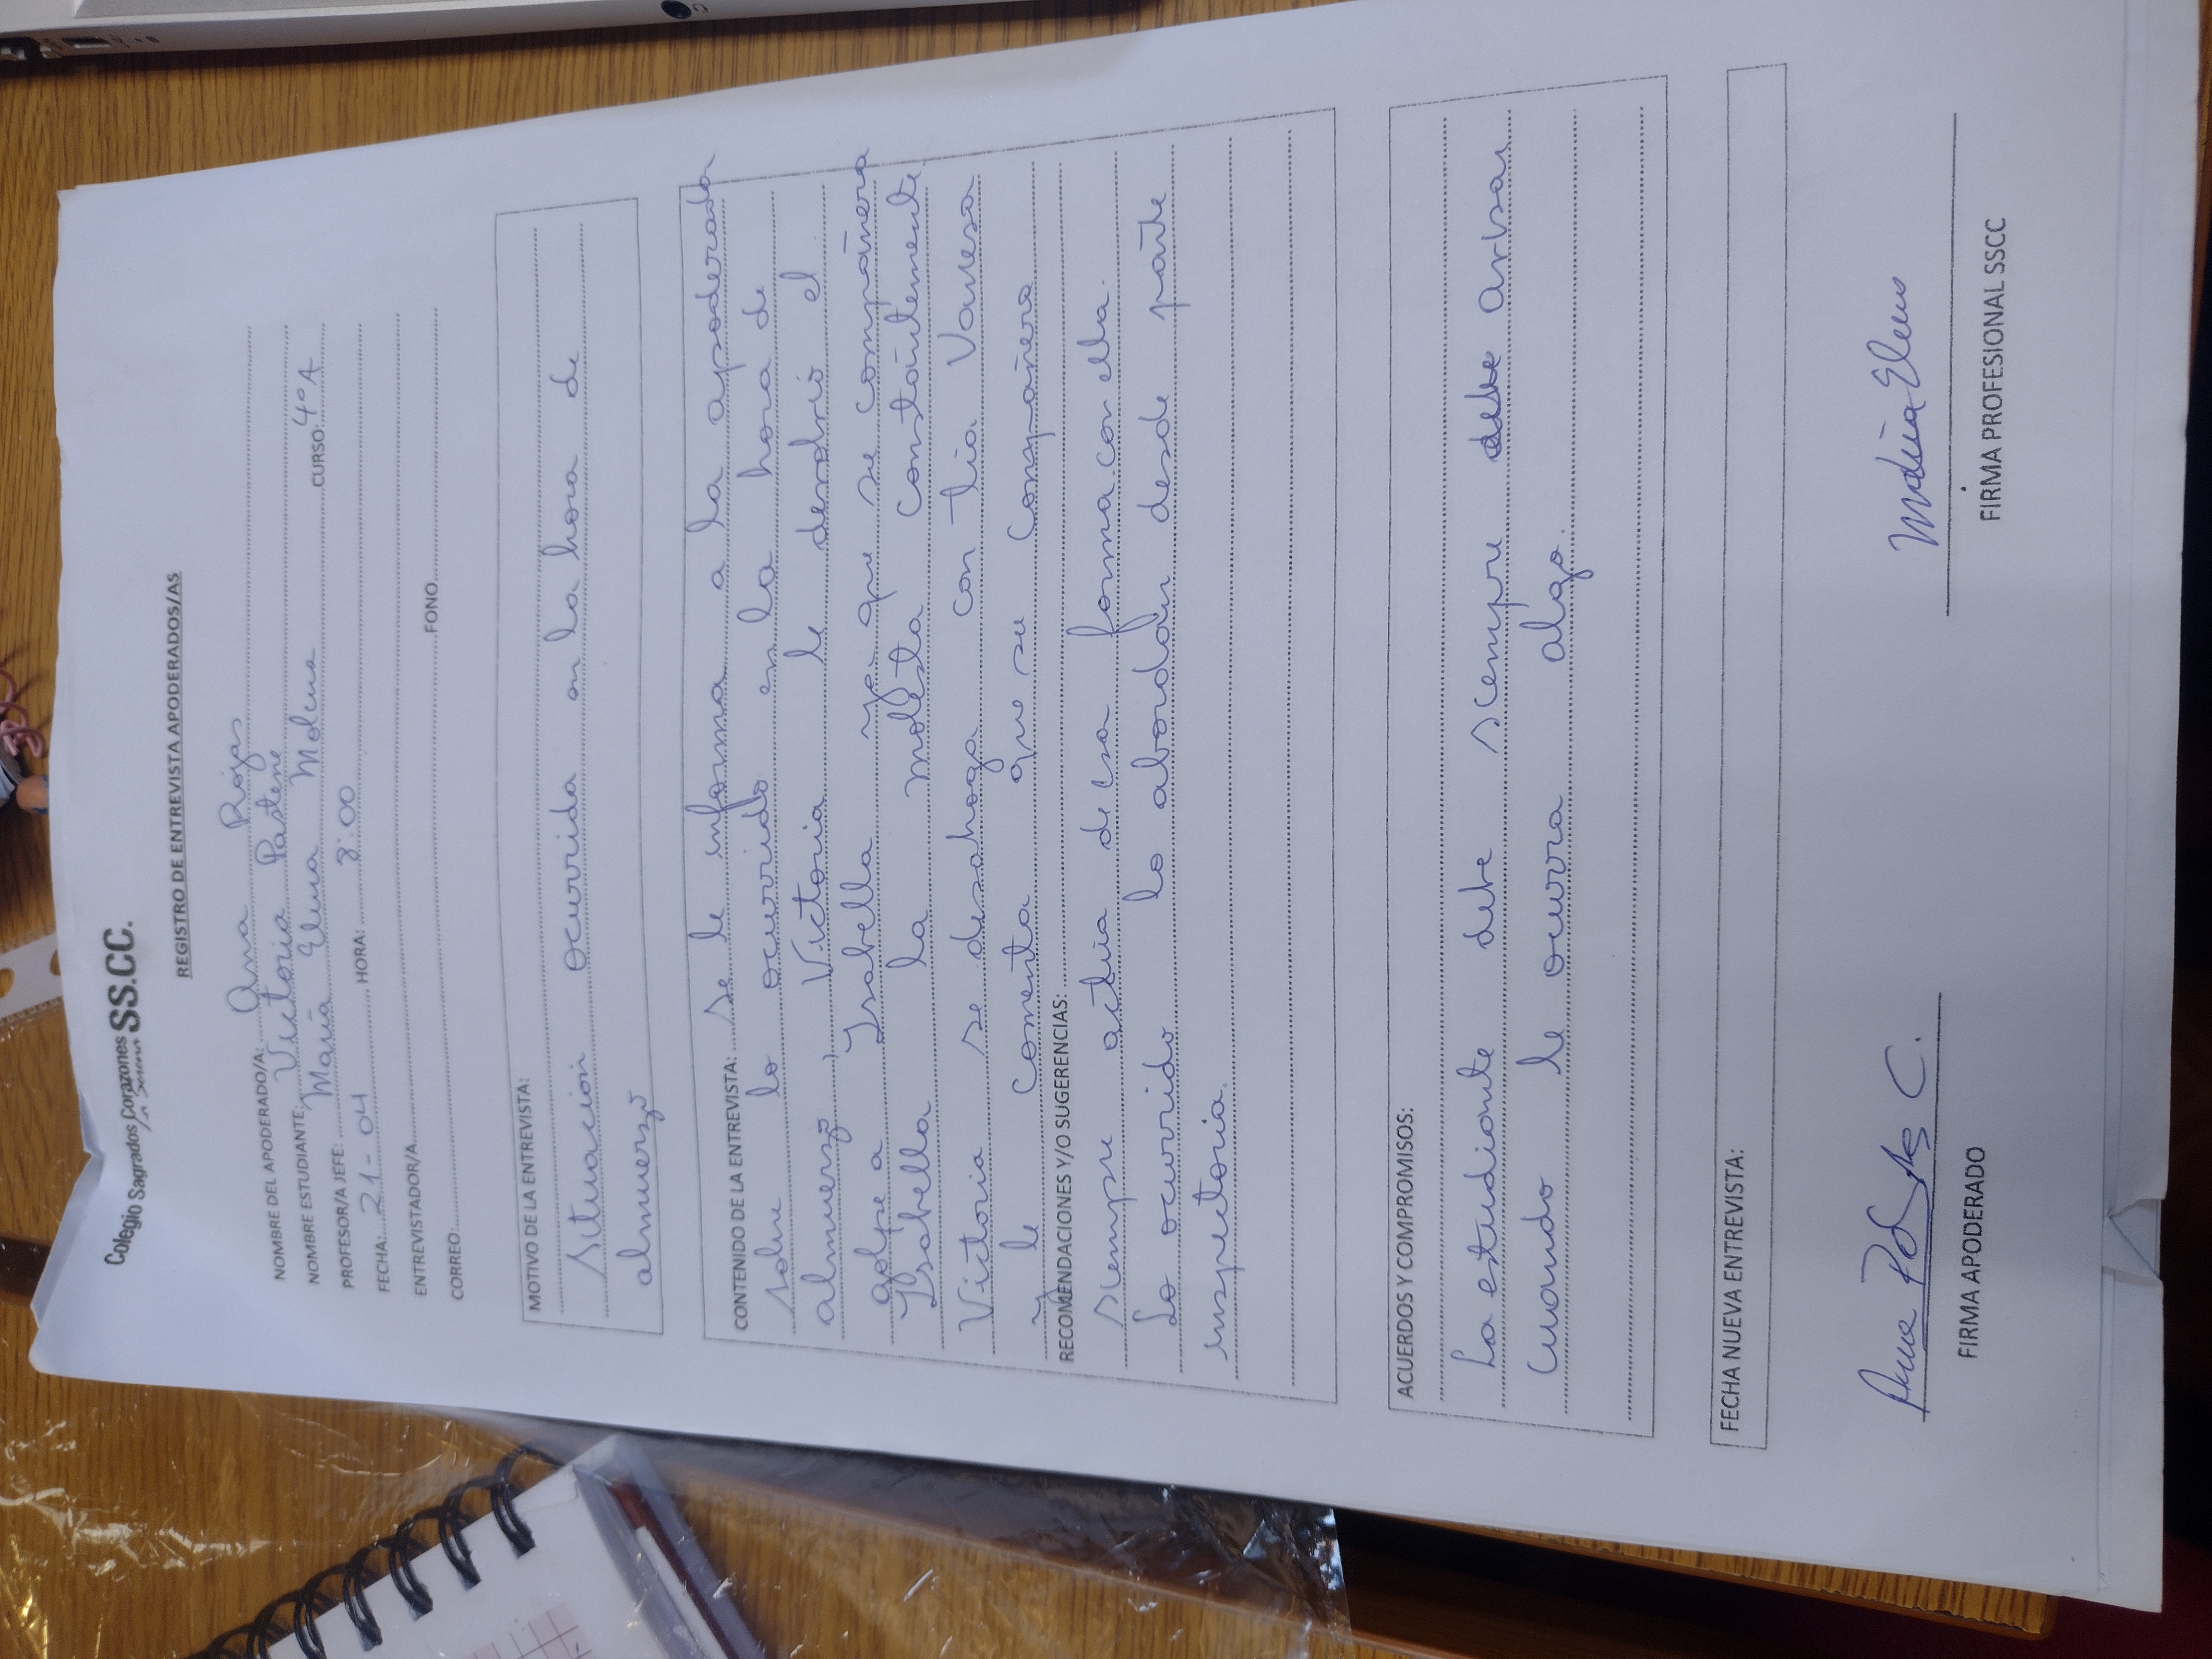 Colegio Sagrados Corazones SS.CC.
La Serena
REGISTRO DE ENTREVISTA APODERADOS/AS
NOMBRE DEL APODERADO/A: Ana Rojas
NOMBRE ESTUDIANTE: Victoria Pastene
PROFESOR/A JEFE: María Elena Molina CURSO: 4°A
FECHA: 21-04 HORA: 8:00
ENTREVISTADOR/A
CORREO: FONO
MOTIVO DE LA ENTREVISTA:
Situación ocurrida en la hora de
almuerzo
CONTENIDO DE LA ENTREVISTA: Se le informa a la apoderada
sobre lo ocurrido en la hora de
almuerzo, Victoria le devolvió el
golpe a Isabella ya que su compañera
Isabella la molesta constantemente
Victoria se desahoga con tía Vanessa
y le comenta que su compañera
RECOMENDACIONES Y/O SUGERENCIAS:
siempre actúa de esa forma con ella.
Lo ocurrido lo abordan desde parte
inspectoría.
ACUERDOS Y COMPROMISOS:
La estudiante debe siempre debe avisar
cuando le ocurra algo.
FECHA NUEVA ENTREVISTA:
FIRMA APODERADO
María Elena
FIRMA PROFESIONAL SSCC